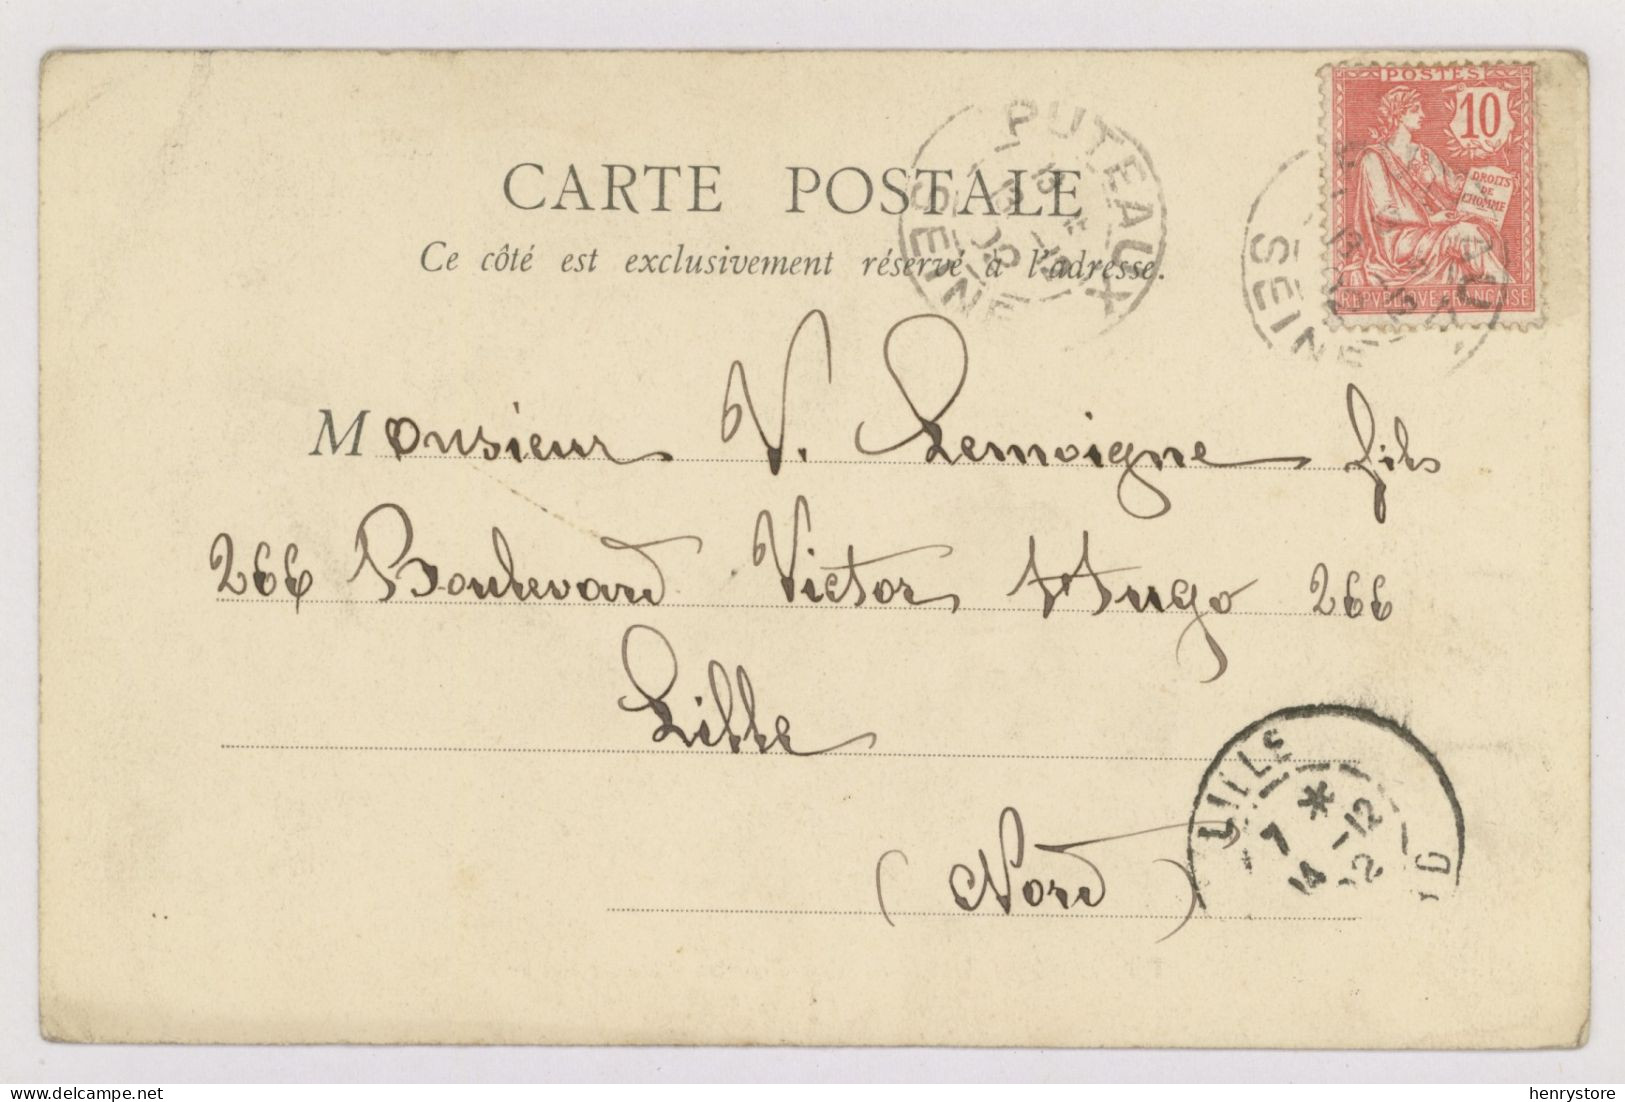 POSTES
10
DROITS
DE
L'HOMME
REPVBLIQVE FRANÇAISE
PUTEAUX
SEINE
CARTE POSTALE
Ce côté est exclusivement réservé à l'adresse.
SEINE
Monsieur V. Lemoigne fils
266 Boulevard Victor Hugo 266
Lille
(Nord)
LILLE
7 * 
14 -12
henrystore